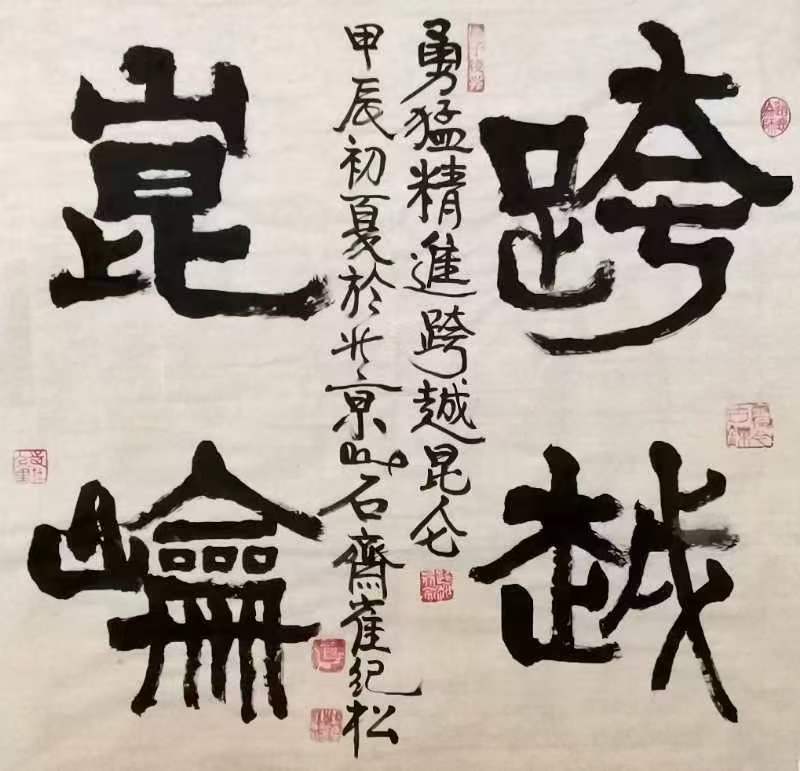 跨越
崑崙
勇猛精進跨越昆仑
甲辰初夏於北京山石齋崔纪松